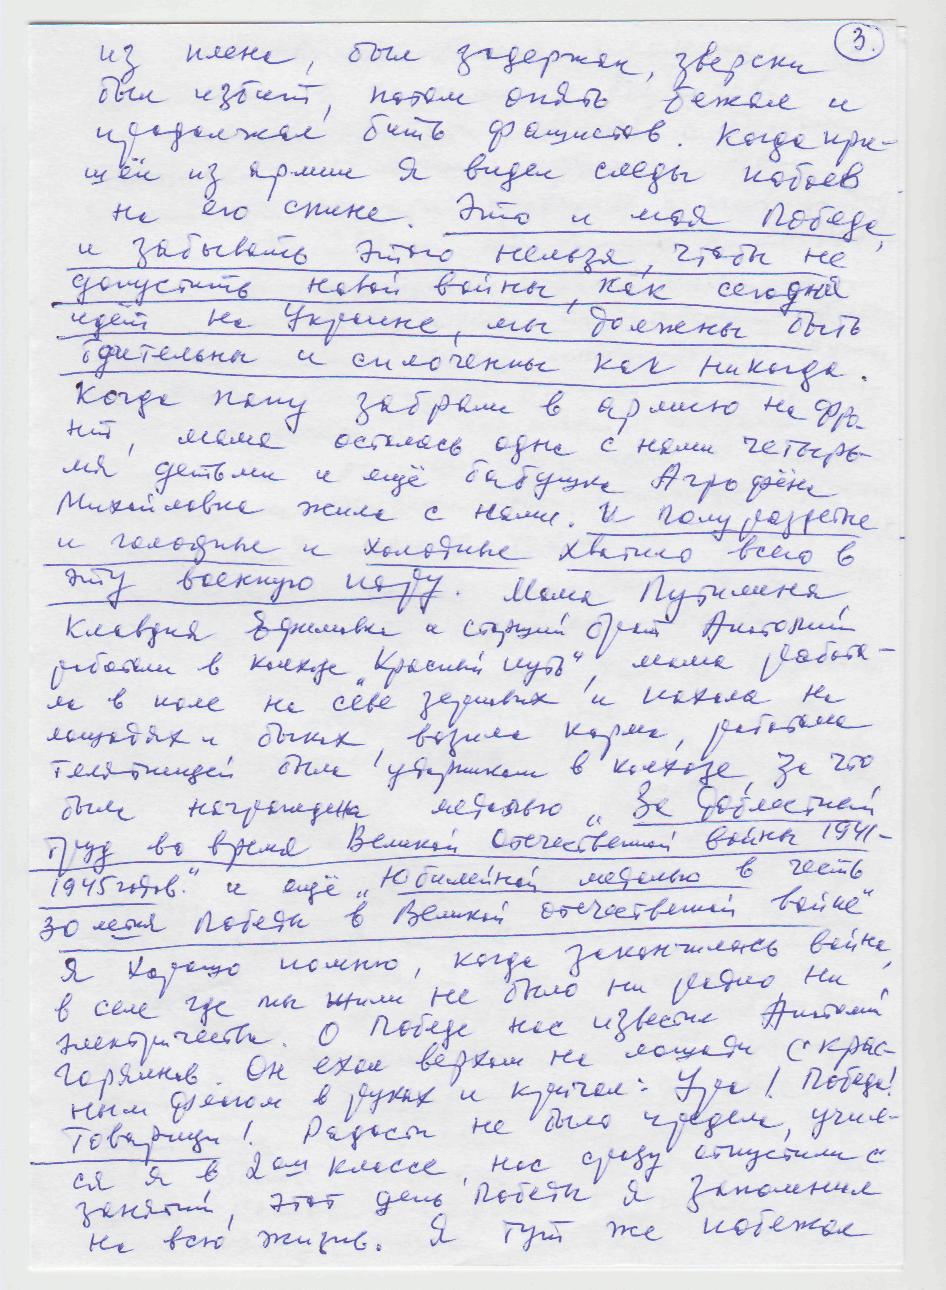 3.
из плена, был задержан, зверски
был избит, потом опять бежал и
продолжал бить фашистов. Когда при-
шёл из армии Я видел следы побоев
на его спине. Это и моя Победа,
и забывать этого нельзя, чтобы не
допустить новой войны, как сегодня
идёт на Украине, мы должены быть
бдительны и сплоченны как никогда.
Когда папу забрали в армию на фро-
нт, мама осталась одна с нами четырь-
мя детьми и ещё бабушка Агрофёна
Михайловна жила с нами. И полураздетые
и голодные и холодные хватило всего в
эту военную пору. Мама Путилина
Клавдия Ефимовна и старший брат Анатолий
работали в колхозе "Красный путь", мама работа-
ла в поле на севе зерновых и пахала на
лошадях и быках, возила корма, работала
телятницей была ударником в колхозе, За что
была награждена медалью "За доблестный
труд во время Великой Отечественной войны 1941-
1945 годов." и ещё "Юбилейной медалью в честь
30 летия Победы в Великой отечественной войне"
Я хорошо помню, когда закончилась война,
в селе где мы жили не было ни радио ни
электричества. О Победе нас известил Анатолий
Горяинов. Он ехал верхом на лошади с крас-
ным флагом в руках и кричал: Ура! Победа!
Товарищи! Радости не было предела, учил-
ся я в 2ом классе, нас сразу отпустили с
занятий, этот день Победы Я запомнил
на всю жизнь. Я тут же побежал